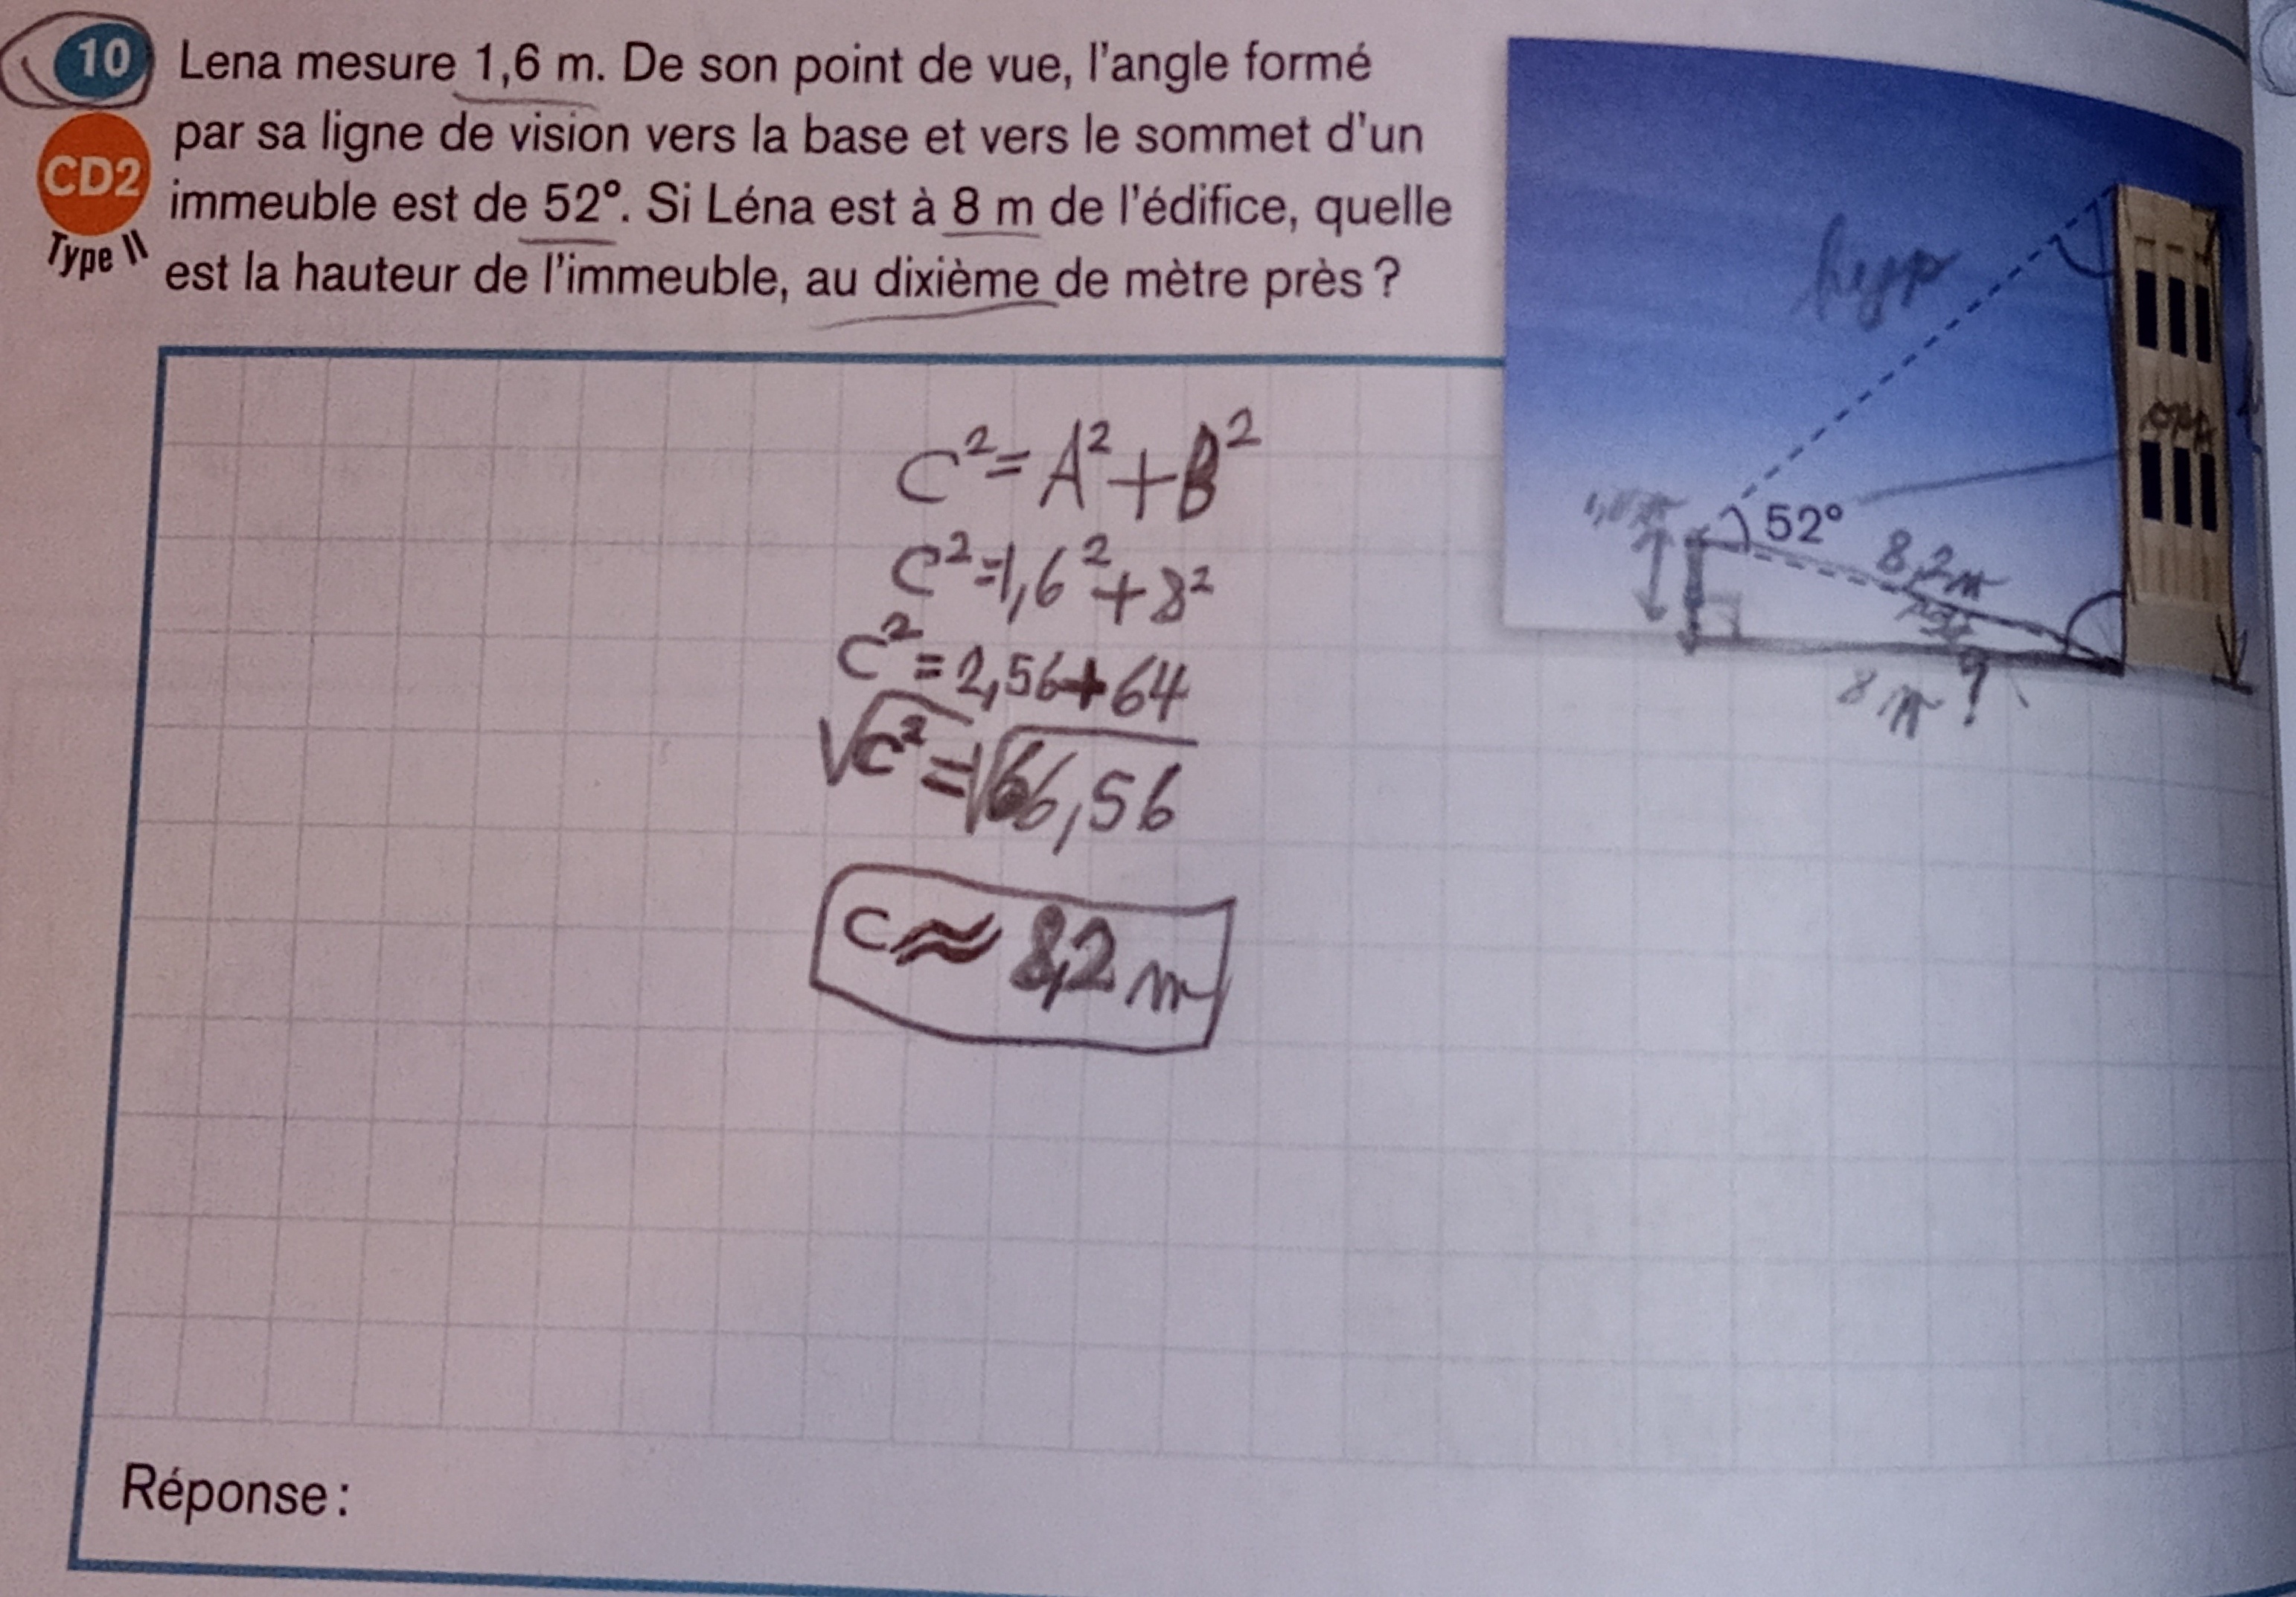 10 Lena mesure 1,6 m. De son point de vue, l'angle formé
par sa ligne de vision vers la base et vers le sommet d'un
CD2
immeuble est de 52°. Si Léna est à 8 m de l'édifice, quelle
Type II
est la hauteur de l'immeuble, au dixième de mètre près ?
hyp
opp
52°
8,2 m
8 m ?
C² = A² + B²
C² = 1,6² + 8²
C² = 2,56 + 64
√C² = √66,56
C ≈ 8,2 m
Réponse :